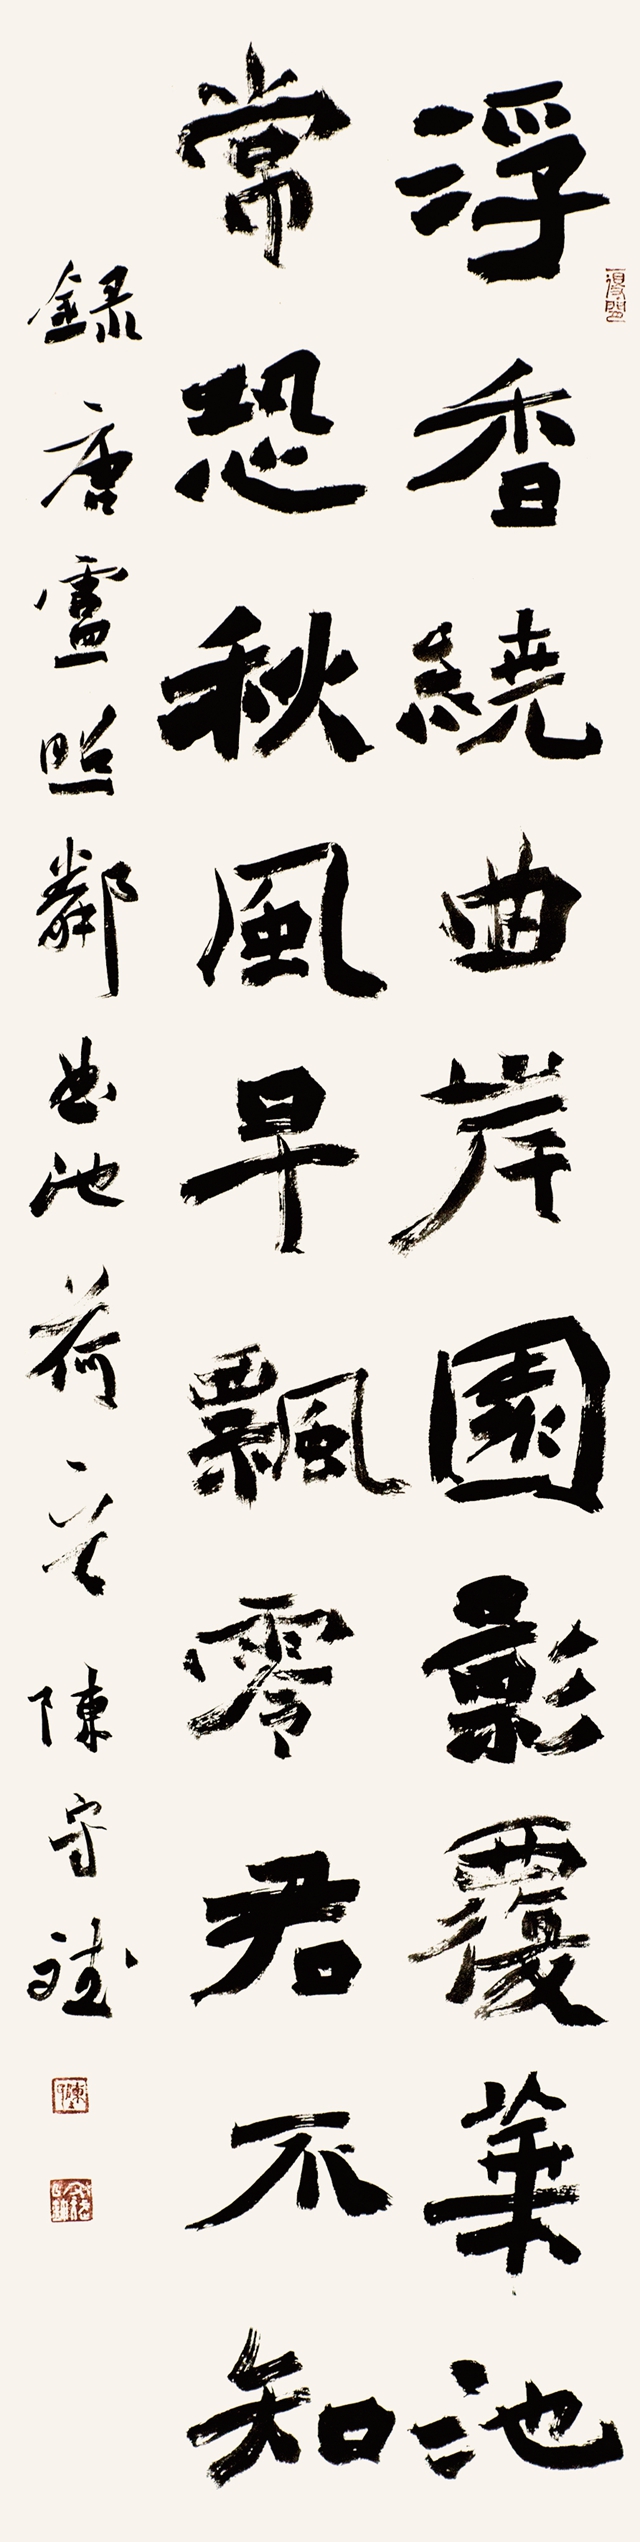 浮香繞曲岸園影覆華池
常恐秋風早飄零君不知
錄唐盧照鄰曲池荷一首 陳守斌